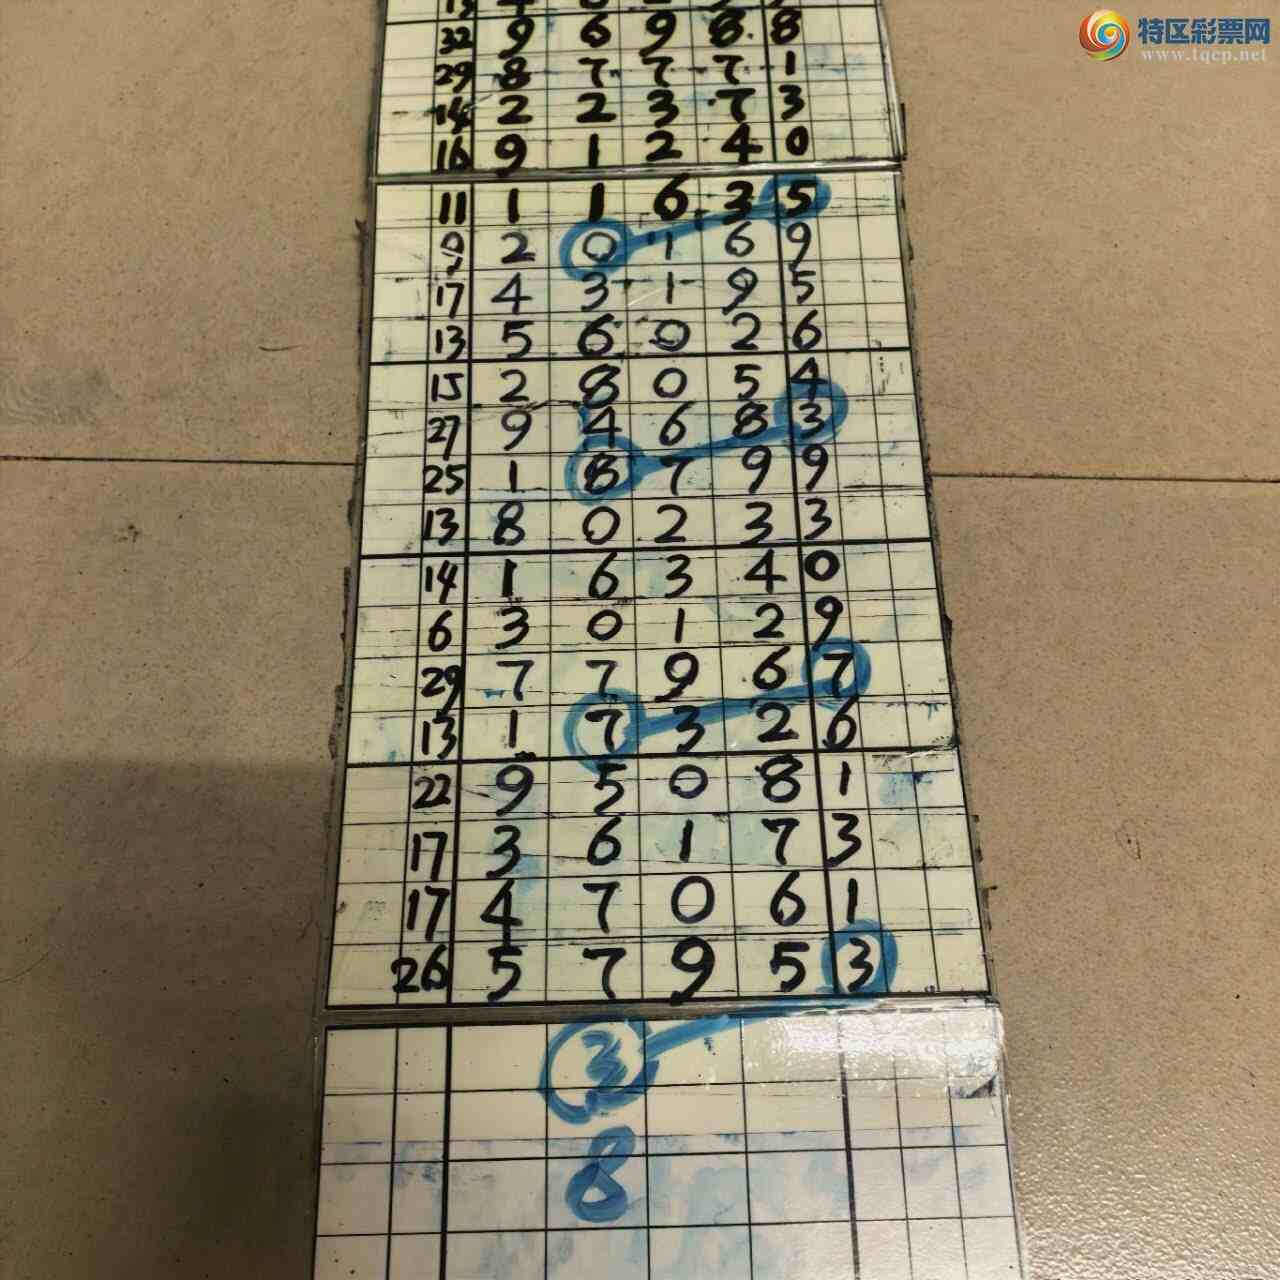 特区彩票网
www.tqcp.net
32 9 6 9 8 8
29 8 7 7 7 1
14 2 2 3 7 3
16 9 1 2 4 0
11 1 1 6 3 5
9 2 0 1 6 9
17 4 3 1 9 5
13 5 6 0 2 6
15 2 8 0 5 4
27 9 4 6 8 3
25 1 8 7 9 9
13 8 0 2 3 3
14 1 6 3 4 0
6 3 0 1 2 9
29 7 7 9 6 7
13 1 7 3 2 6
22 9 5 0 8 1
17 3 6 1 7 3
17 4 7 0 6 1
26 5 7 9 5 3
3
8